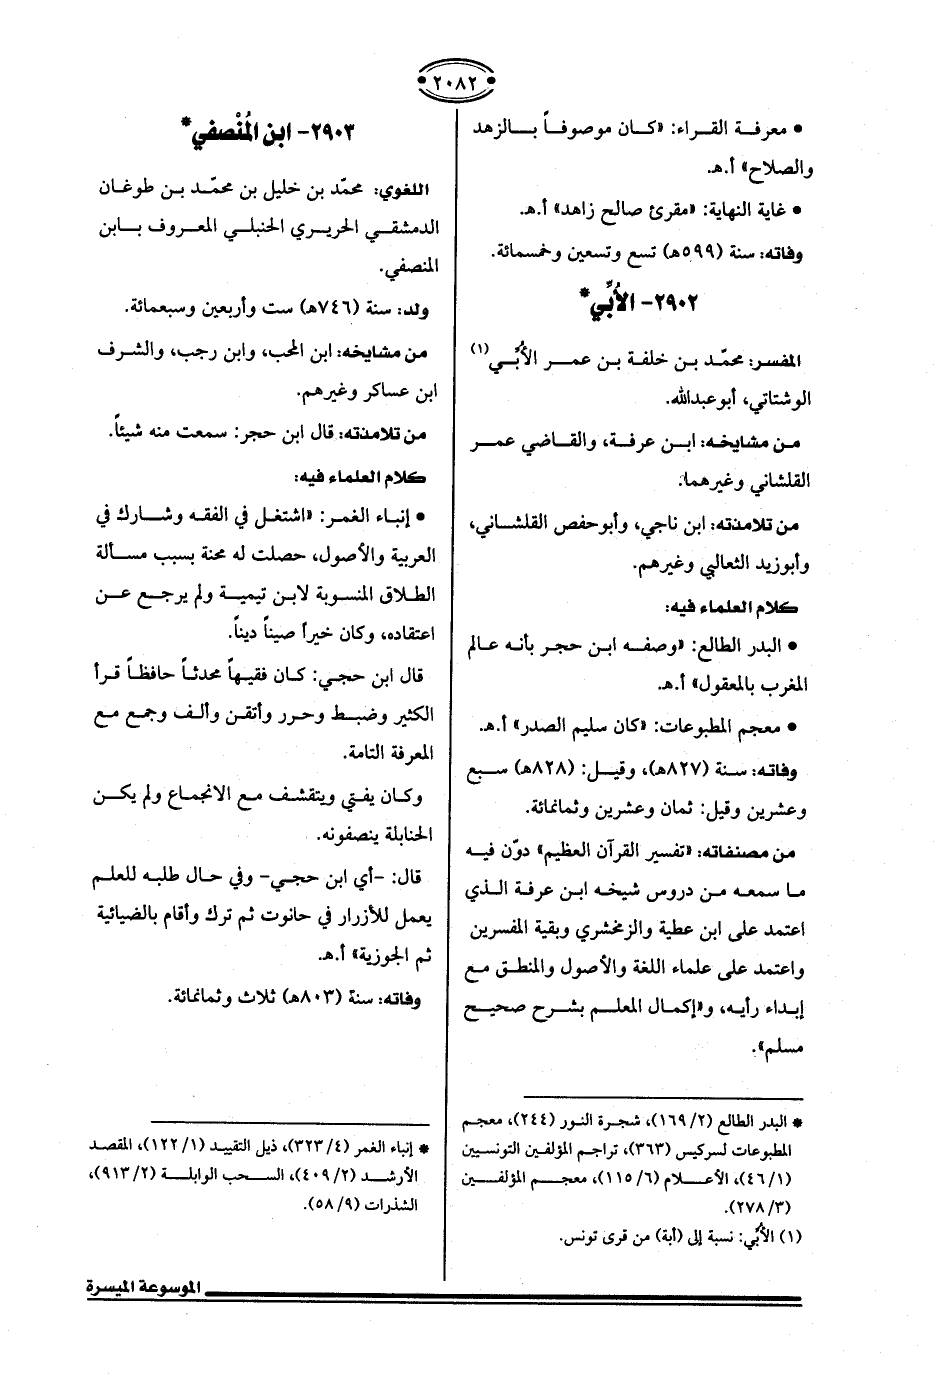 ٢٠٨٢
• معرفة القراء: «كان موصوفاً بالزهد
والصلاح» أ.هـ.
• غاية النهاية: «مقرئ صالح زاهد» أ.هـ.
وفاته: سنة (٥٩٩هـ) تسع وتسعين وخمسمائة.
٢٩٠٢- الأُبِّي*
المفسر: محمّد بن خلفة بن عمر الأُبّي(١)
الوشتاتي، أبو عبدالله.
من مشايخه: ابن عرفة، والقاضي عمر
القلشاني وغيرهما.
من تلامذته: ابن ناجي، وأبو حفص القلشاني،
وأبو زيد الثعالبي وغيرهم.
كلام العلماء فيه:
• البدر الطالع: «وصفه ابن حجر بأنه عالم
المغرب بالمعقول» أ.هـ.
• معجم المطبوعات: «كان سليم الصدر» أ.هـ.
وفاته: سنة (٨٢٧هـ)، وقيل: (٨٢٨هـ) سبع
وعشرين وقيل: ثمان وعشرين وثمانمائة.
من مصنفاته: «تفسير القرآن العظيم» دوّن فيه
ما سمعه من دروس شيخه ابن عرفة الذي
اعتمد على ابن عطية والزمخشري وبقية المفسرين
واعتمد على علماء اللغة والأصول والمنطق مع
إبداء رأيه، و«إكمال المعلم بشرح صحيح
مسلم».
* البدر الطالع (٢/ ١٦٩)، شجرة النور (٢٤٤)، معجم
المطبوعات لسركيس (٣٦٣)، تراجم المؤلفين التونسيين
(١/ ٤٦)، الأعلام (٦/ ١١٥)، معجم المؤلفين
(٣/ ٢٧٨).
(١) الأُبّي: نسبة إلى (أبة) من قرى تونس.
٢٩٠٣- ابن المُنْصفي*
اللغوي: محمّد بن خليل بن محمّد بن طوغان
الدمشقي الحريري الحنبلي المعروف بابن
المنصفي.
ولد: سنة (٧٤٦هـ) ست وأربعين وسبعمائة.
من مشايخه: ابن المحب، وابن رجب، والشرف
ابن عساكر وغيرهم.
من تلامذته: قال ابن حجر: سمعت منه شيئاً.
كلام العلماء فيه:
• إنباء الغمر: «اشتغل في الفقه وشارك في
العربية والأصول، حصلت له محنة بسبب مسألة
الطلاق المنسوبة لابن تيمية ولم يرجع عن
اعتقاده، وكان خيراً صيناً ديناً.
قال ابن حجي: كان فقيهاً محدثاً حافظاً قرأ
الكثير وضبط وحرر وأتقن وألف وجمع مع
المعرفة التامة.
وكان يفتي ويتقشف مع الانجماع ولم يكن
الحنابلة ينصفونه.
قال: -أي ابن حجي- وفي حال طلبه للعلم
يعمل للأزرار في حانوت ثم ترك وأقام بالضيائية
ثم الجوزية» أ.هـ.
وفاته: سنة (٨٠٣هـ) ثلاث وثمانمائة.
* إنباء الغمر (٤/ ٣٢٣)، ذيل التقييد (١/ ١٢٢)، المقصد
الأرشد (٢/ ٤٠٩)، السحب الوابلة (٢/ ٩١٣)،
الشذرات (٩/ ٥٨).
الموسوعة الميسرة